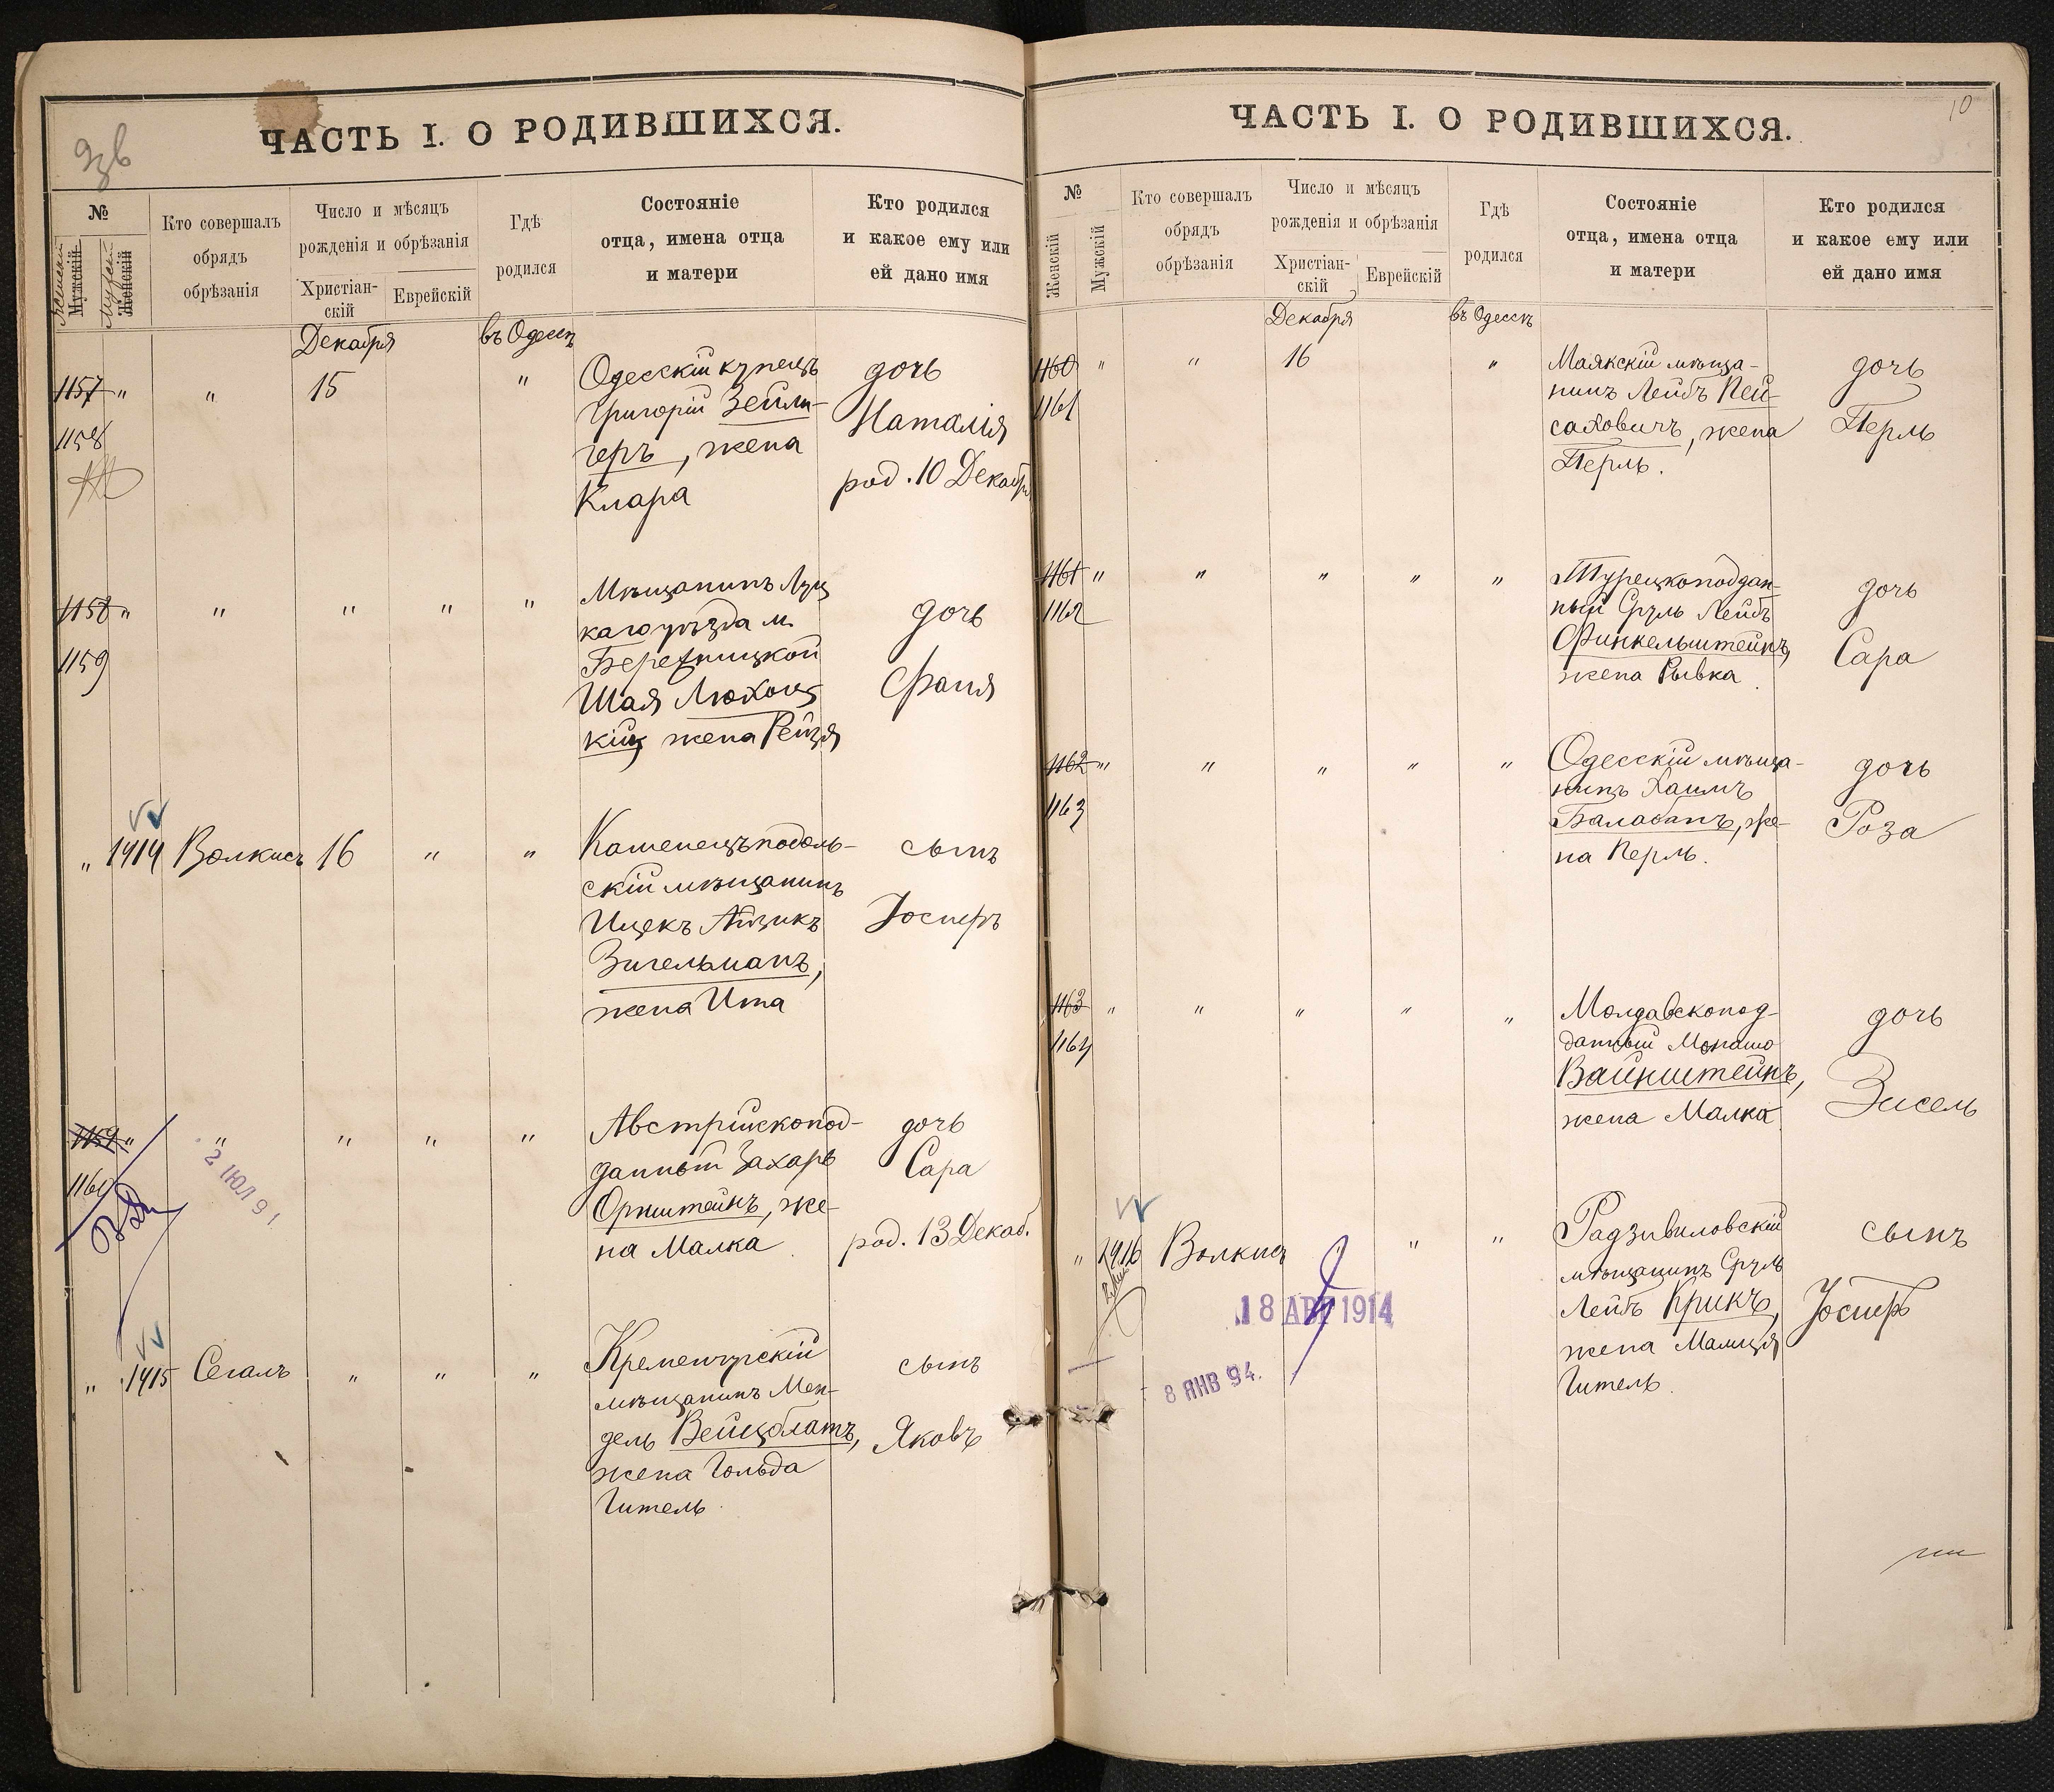 ЧАСТЬ I. О РОДИВШИХСЯ.
№
Мужскій
Женскій
Кто совершалъ
обрядъ
обрѣзанія
Число и мѣсяцъ
рожденія и обрѣзанія
Христіан-
скій
Еврейскій
Гдѣ
родился
Состояніе
отца, имена отца
и матери
Кто родился
и какое ему или
ей дано имя
Декабря
въ Одессѣ
1157 " " 15 " Одесскій купецъ дочь
1158 Григорій Зейли- Наталія
геръ, жена род. 10 Декабр
Клара
1158 " " " " " Мѣщанинъ Луц
каго уѣзда м. дочь
1159
Шая Люховц Фаня
кій жена Рейзя
" 1414 Волкисъ 16 " " Каменецъ подоль- сынъ
скій мѣщанинъ
Ицекъ Айзикъ Іосифъ
Зигельманъ,
жена Ита
1159 " " " " " Австрійскопод- дочь
1160 данный Захарь Сара
Орнштейнъ, же-
на Малка род. 13 Декаб.
2 ІЮЛ 91
" 1415 Сегалъ " " " Кременчугскій сынъ
мѣщанинъ Мен-
дель Вейцблатъ, Яковъ
жена Гольда
Гитель
10
ЧАСТЬ I. О РОДИВШИХСЯ.
№
Женскій
Мужскій
Кто совершалъ
обрядъ
обрѣзанія
Число и мѣсяцъ
рожденія и обрѣзанія
Христіан-
скій
Еврейскій
Гдѣ
родился
Состояніе
отца, имена отца
и матери
Кто родился
и какое ему или
ей дано имя
Декабря
въ Одессѣ
1160 " " 16 " Маякскій мѣща- дочь
1161 нинъ Лейбъ Пей-
саховичъ, жена Перль
Перль.
1161 " " " " " Турецкоподдан- дочь
1162 ный Сруль Лейбъ
Финкельштейнъ, Сара
жена Рывка
1162 " " " " " Одесскій мѣща- дочь
нинъ Хаимъ
1163 Балабанъ, же- Роза
на Перль.
1163 " " " " " Молдавскопод- дочь
1164 данный
Вайнштейнъ,
жена Малка Зисель
" 1416 Волкисъ " " Радзивиловскій сынъ
мѣщанинъ Сруль
Лейбъ Крикъ, Іосифъ
жена
Гитель.
18 АВГ 1914
8 ЯНВ 94.